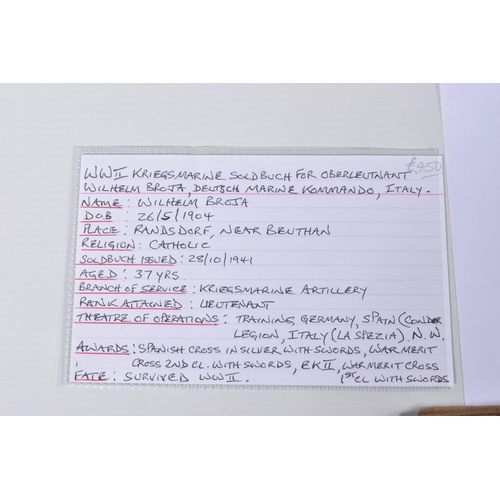 £950
WWII KRIEGSMARINE SOLDBUCH FOR OBERLEUTNANT
WILHELM BROJA, DEUTSCH MARINE KOMMANDO, ITALY.
NAME: WILHELM BROJA
DOB: 26/5/1904
PLACE: RANDSDORF, NEAR BEUTHAN
RELIGION: CATHOLIC
SOLDBUCH ISSUED: 28/10/1941
AGED: 37 YRS.
BRANCH OF SERVICE: KRIEGSMARINE ARTILLERY
RANK ATTAINED: LIEUTENANT
THEATRE OF OPERATIONS: TRAINING, GERMANY, SPAIN (CONDOR
LEGION, ITALY (LA SPEZIA) N.W.
AWARDS: SPANISH CROSS IN SILVER WITH SWORDS, WAR MERIT
CROSS 2ND CL. WITH SWORDS, EKII, WAR MERIT CROSS
FATE: SURVIVED WWII. 1ST CL WITH SWORDS